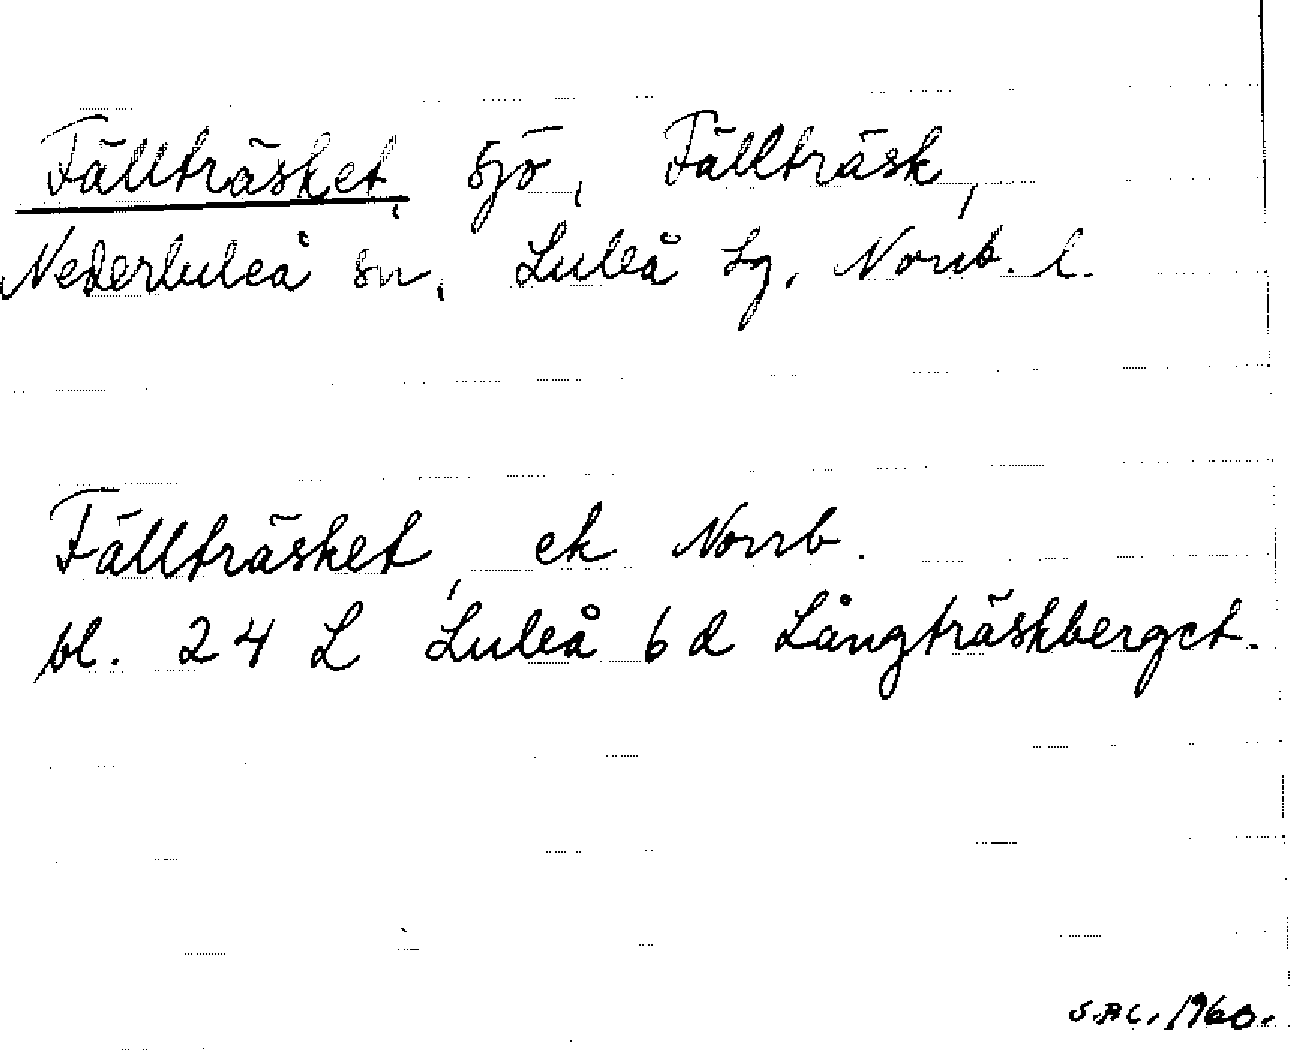 Fällträsket, sjö, Fällträsk,
Nederluleå sn, Luleå tg, Norrb. l.
Fällträsket, ek Norrb.
bl. 24 L Luleå 6 d Långträskberget.
1960.